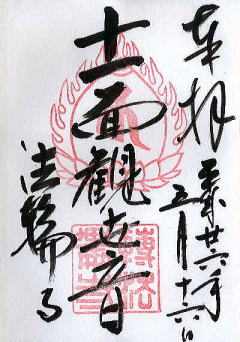 奉拝
平成廿六年
五月十六日
十一面観世音
法輪寺